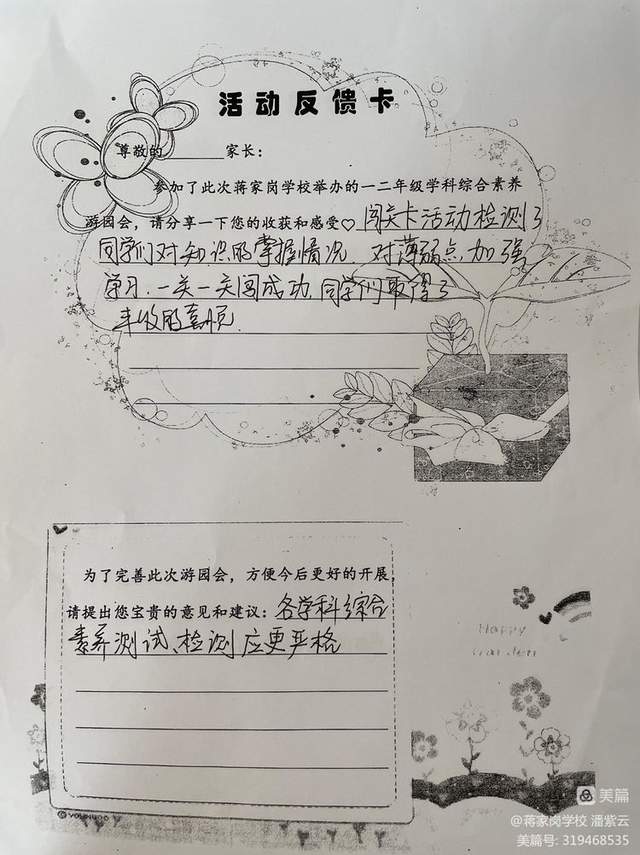 活动反馈卡
尊敬的______家长：
参加了此次蒋家岗学校举办的一二年级学科综合素养
游园会，请分享一下您的收获和感受♡闯关卡活动检测了
同学们对知识的掌握情况. 对薄弱点加强
学习.一关一关闯成功.同学们取得了
丰收的喜悦.
为了完善此次游园会，方便今后更好的开展，
请提出您宝贵的意见和建议：各学科综合
素养测试、检测应更严格
Happy
Garden
美篇
@蒋家岗学校 潘紫云
美篇号: 319468535